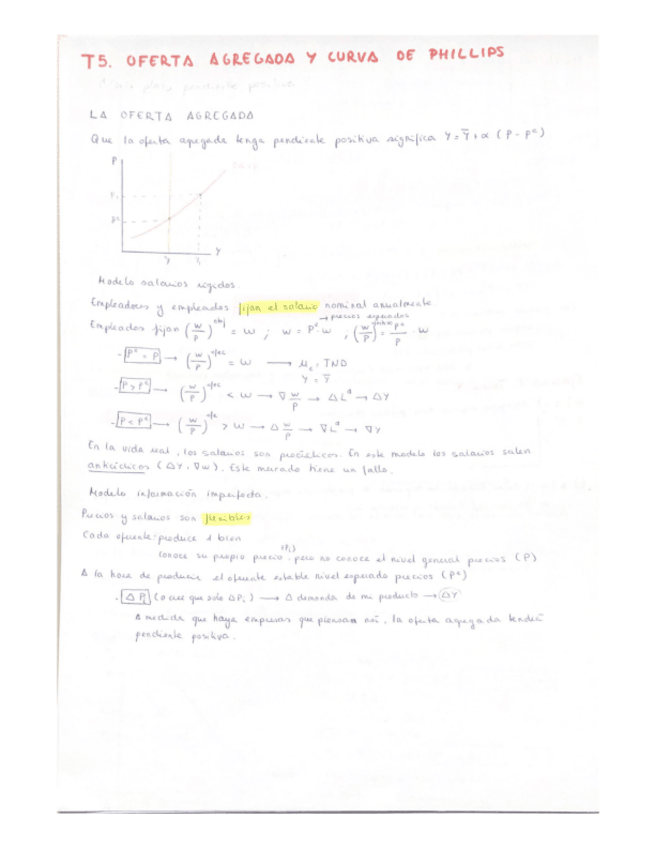 T5. OFERTA AGREGADA Y CURVA DE PHILLIPS
LA OFERTA AGREGADA
Que la oferta agregada tenga pendiente positiva significa Y = Ȳ + α (P - Pᵉ)
P
P₁
Pᵉ
Ȳ Y₁ Y
Modelo salarios rígidos.
Empleadores y empleados fijan el salario nominal anualmente
→ precios esperados
Empleados fijan (W/P)ᵒᵇʲ = w ; W = Pᵉ w ; (W/P) = Pᵉ/P · w
- Pᵉ = P → (W/P) = w → TND
Y = Ȳ
- P > Pᵉ → (W/P) < w → ∇ W/P → Δ Lᵈ → ΔY
- P < Pᵉ → (W/P) > w → Δ W/P → ∇ Lᵈ → ∇Y
En la vida real, los salarios son procíclicos. En este modelo los salarios salen
anticíclicos (ΔY, ∇w). Este mercado tiene un fallo.
Modelo información imperfecta.
Precios y salarios son flexibles
Cada oferente: produce 1 bien
conoce su propio precio (Pᵢ), pero no conoce el nivel general precios (P)
A la hora de producir el oferente estable nivel esperado precios (Pᵉ)
- Δ Pᵢ (o cree que sólo ΔPᵢ) → Δ demanda de mi producto → ΔY
A medida que haya empresas que piensan así, la oferta agregada tendrá
pendiente positiva.